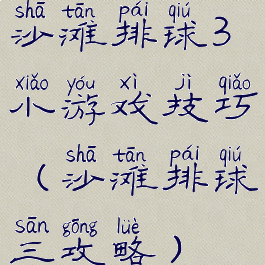 shā tān pái qiú
沙滩排球3
xiǎo yóu xì jì qiǎo
小游戏技巧
shā tān pái qiú
(沙滩排球
sān gōng lüè
三攻略)